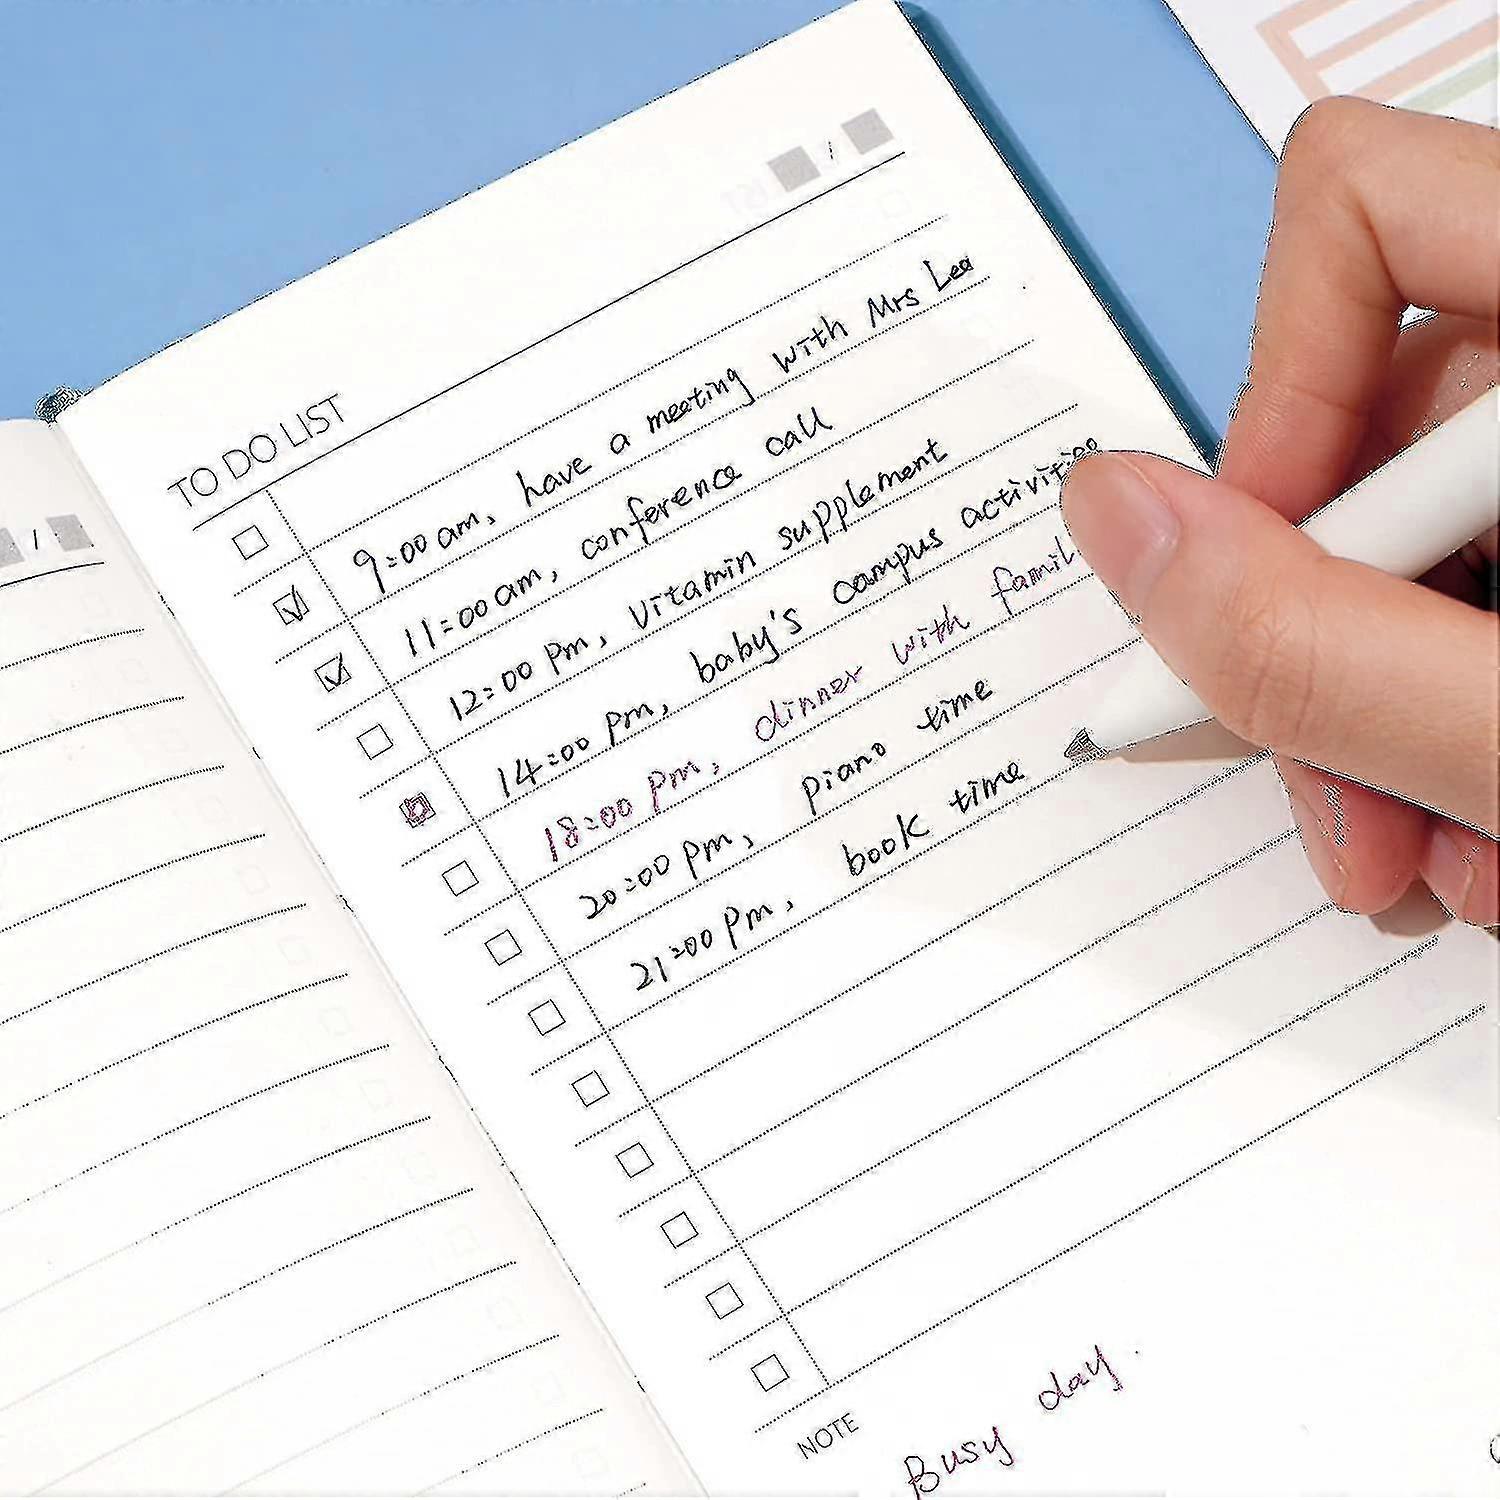 /
TO DO LIST
9:00 am, have a meeting with Mrs Lea
11:00 am, conference call
12:00 pm, vitamin supplement
14:00 pm, baby's campus activities
18:00 pm, dinner with famil
20:00 pm, piano time
21:00 pm, book time
NOTE
Busy day.
/